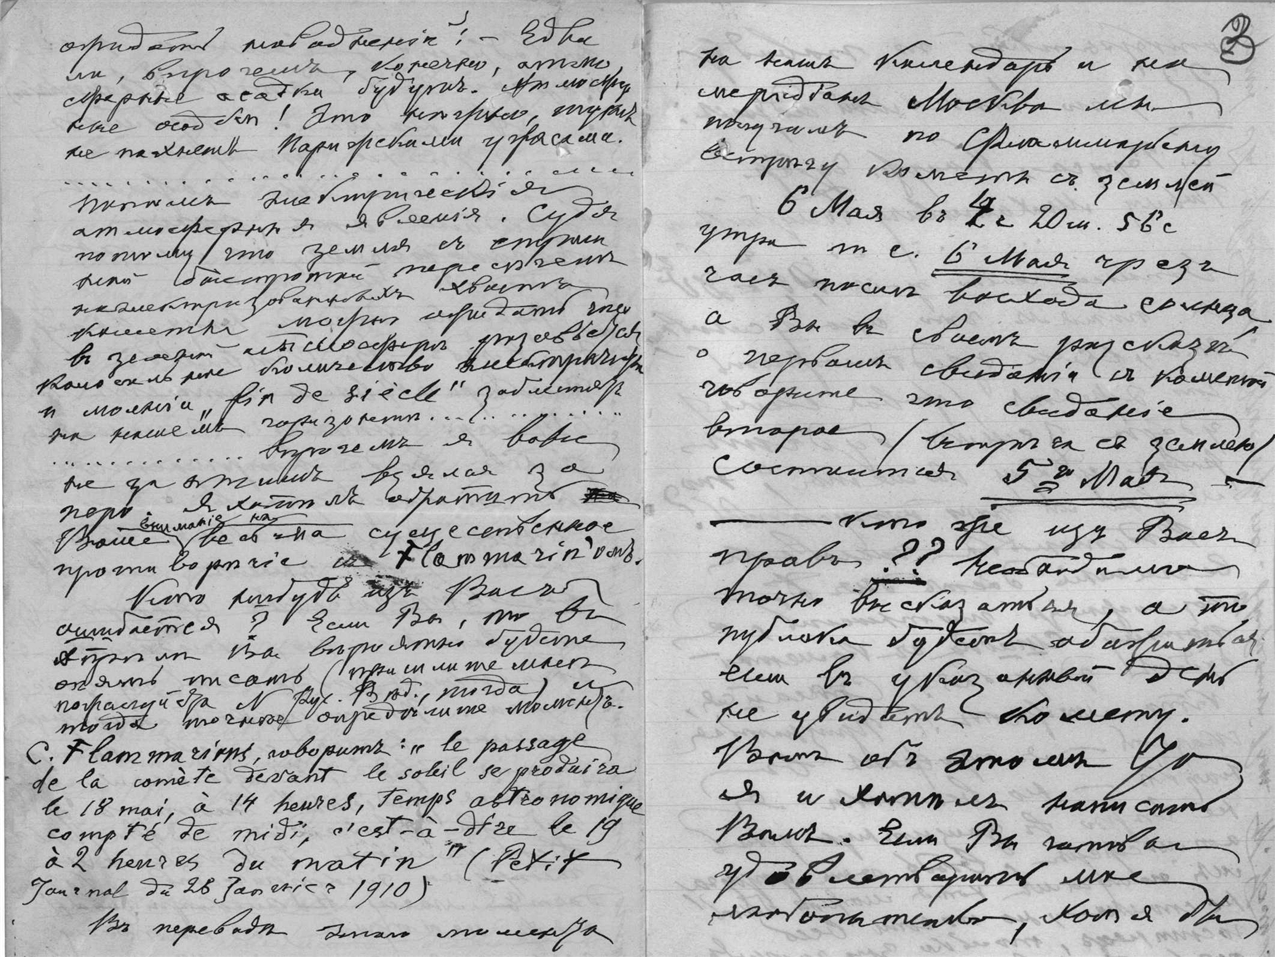 ожидать наводненій! – Едва
ли, впрочемъ, конечно, атмо
сферные осадки будутъ. Атмосфер
ные осадки! Это конечно,
не пахнетъ Парижскими ужасами.
Потомъ электрическія
атмосферныя явленія. Судя
потому что земля съ страш
ной быстротой пересѣчетъ
наэлектризованныхъ хвостъ
кометы можно ожидать что
въ земной атмосферѣ разовьется
колоссальное количество электричества
и молніи „fin de siècle" заблестятъ
на нашемъ горизонтѣ
впрочемъ я вовсе
не за этимъ взялся за
перо. Я хотѣлъ обратить
Ваше вниманіе на весьма существенное
противорѣчіе съ Flammarion'омъ.
Кто нибудь изъ Васъ
ошибается? Если Вы, то въ
Вы вѣроятно будете
опять писать (пришлите мнѣ
пожалуйста N Рус. Вѣд., тогда) и
тогда точнѣе опредѣлите моментъ.
C. Flammarions, говоритъ: „le passage
de la comète devant le soleil se produira
le 18 mai, à 14 heures, temps astronomique
compté de midi, c'est-à-dire le 19
à 2 heures du matin" (Petit
Journal du 28 Janvier 1910)
Въ переводѣ этого момента
на нашъ календарь и на
меридіанъ Москвы мы
получимъ по Фламмаріону
встрѣчу кометы съ землей
6 Мая въ 4 ч 20 м. 56 с
утра т. е. 6 Мая чрезъ
часъ послѣ восхода солнца
а Вы въ своемъ разсказѣ
о первомъ свиданіи съ кометой
говорите что свиданіе
второе (встрѣча съ землею)
состоится 5го Мая –
– Кто же изъ Васъ
правъ ?? Необходимо
точно высказаться, а то
публика будетъ
если въ указанный день
не увидитъ комету.
Вотъ объ этомъ
я и хотѣлъ написать
Вамъ. Если Вы готовы
удовлетворить мое
любопытство, хотя бы